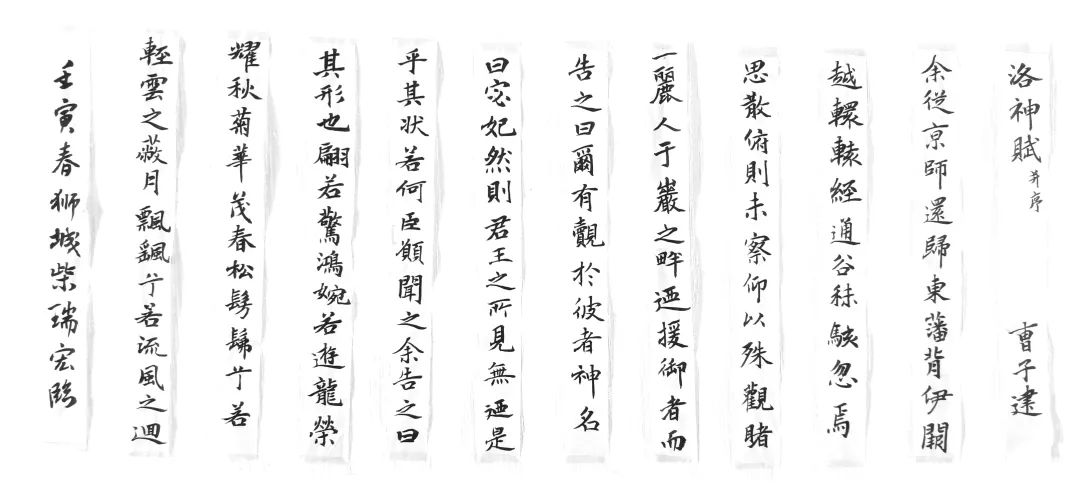 洛神賦 并序 曹子建
余從京師還歸東藩背伊闕
越轘轅經通谷秣駭忽焉
思散俯則未察仰以殊觀睹
一麗人于巖之畔迺援御者而
告之曰爾有覿於彼者神名
曰宓妃然則君王之所見無迺是
乎其狀若何臣願聞之余告之曰
其形也翩若驚鴻婉若遊龍榮
耀秋菊華茂春松髣髴兮若
輕雲之蔽月飄颻兮若流風之迴
壬寅春狮城柴瑞宏臨